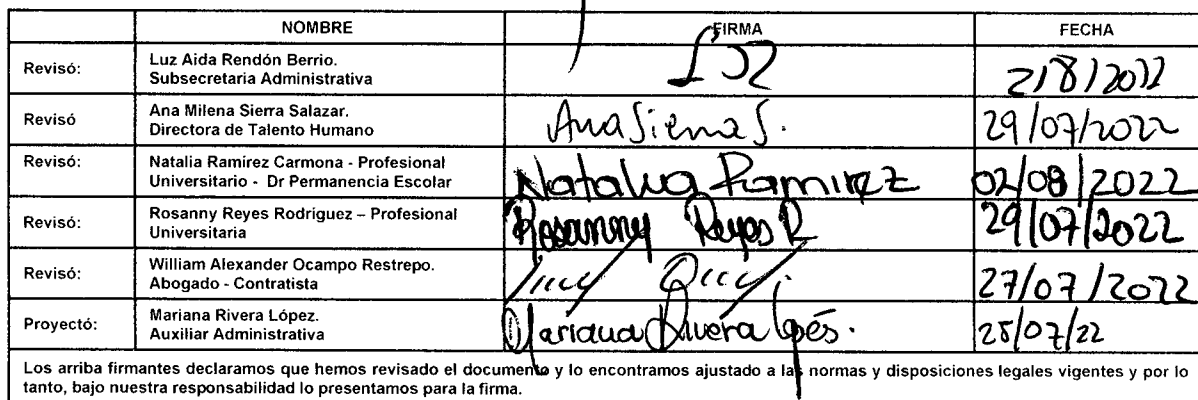 NOMBRE FIRMA FECHA
Revisó: Luz Aida Rendón Berrio.
Subsecretaria Administrativa
2/8/2022
Revisó Ana Milena Sierra Salazar.
Directora de Talento Humano
Ana Sierra S. 29/07/2022
Revisó: Natalia Ramírez Carmona - Profesional
Universitario - Dr Permanencia Escolar
Natalia Ramirez 02/08/2022
Revisó: Rosanny Reyes Rodríguez – Profesional
Universitaria
Rosanny Reyes R 29/07/2022
Revisó: William Alexander Ocampo Restrepo.
Abogado - Contratista
27/07/2022
Proyectó: Mariana Rivera López.
Auxiliar Administrativa
Mariana Rivera López. 25/07/22
Los arriba firmantes declaramos que hemos revisado el documento y lo encontramos ajustado a las normas y disposiciones legales vigentes y por lo
tanto, bajo nuestra responsabilidad lo presentamos para la firma.